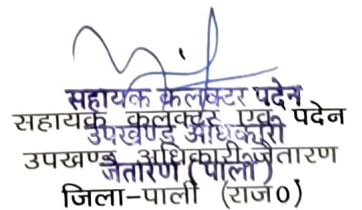 सहायक कलक्टर पदेन
सहायक कलक्टर एवं पदेन
उपखण्ड अधिकारी
उपखण्ड अधिकारी जैतारण
जैतारण (पाली)
जिला-पाली (राज0)